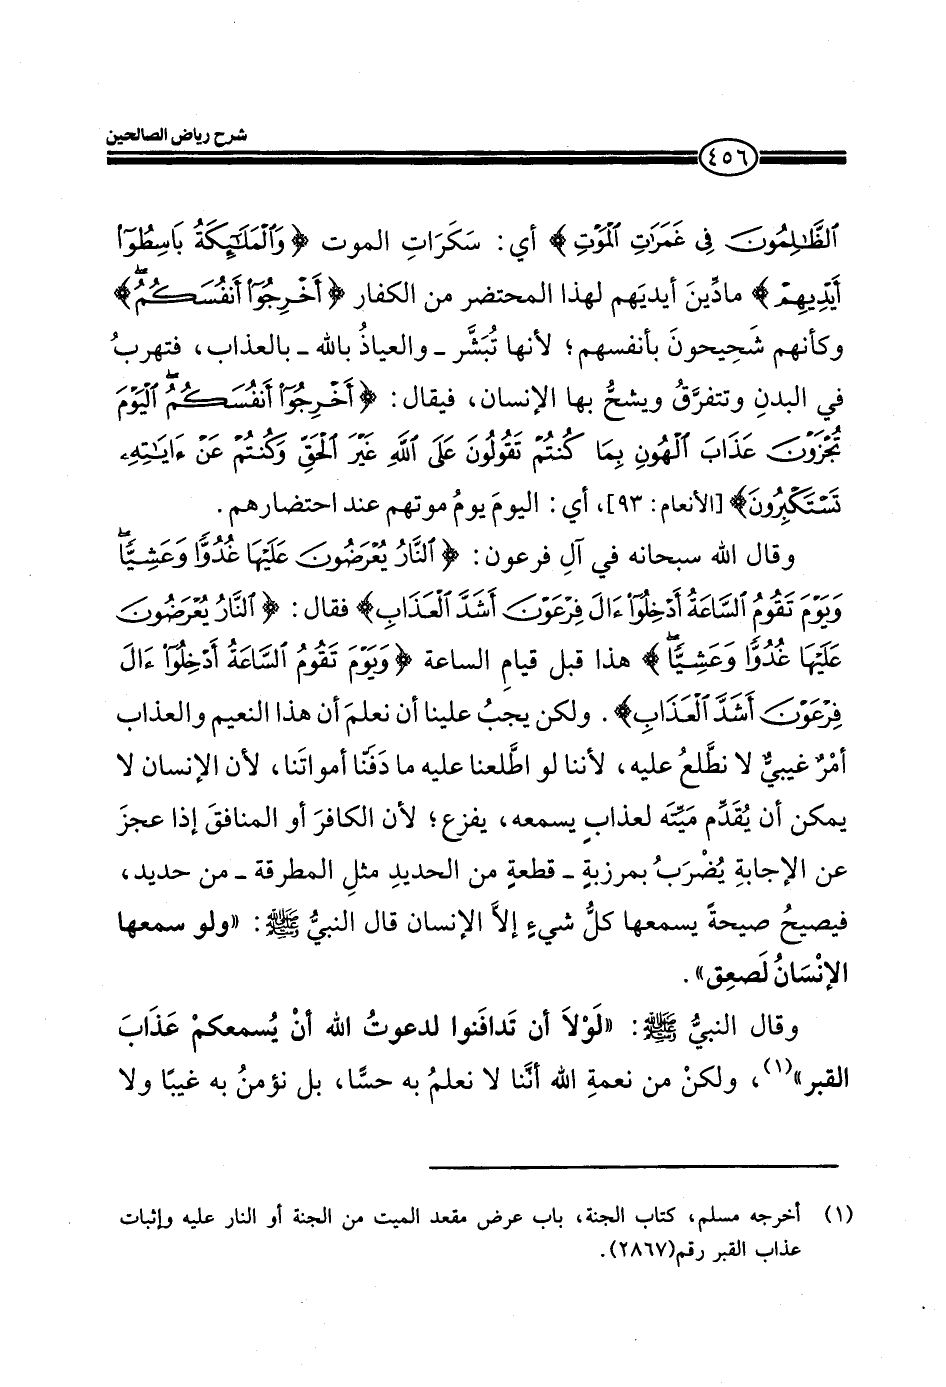 شرح رياض الصالحين
٤٥٦
ٱلظَّٰلِمُونَ فِي غَمَرَٰتِ ٱلۡمَوۡتِ﴾ أي: سَكَرَاتِ الموت ﴿وَٱلۡمَلَٰٓئِكَةُ بَاسِطُوٓاْ
أَيۡدِيهِمۡ﴾ مادِّينَ أيديَهم لهذا المحتضر من الكفار ﴿أَخۡرِجُوٓاْ أَنفُسَكُمُۖ﴾
وكأنهم شَحِيحونَ بأنفسهم؛ لأنها تُبَشَّر ـ والعياذُ بالله ـ بالعذاب، فتهربُ
في البدنِ وتتفرَّقُ ويشحُّ بها الإنسان، فيقال: ﴿أَخۡرِجُوٓاْ أَنفُسَكُمُۖ ٱلۡيَوۡمَ
تُجۡزَوۡنَ عَذَابَ ٱلۡهُونِ بِمَا كُنتُمۡ تَقُولُونَ عَلَى ٱللَّهِ غَيۡرَ ٱلۡحَقِّ وَكُنتُمۡ عَنۡ ءَايَٰتِهِۦ
تَسۡتَكۡبِرُونَ﴾ [الأنعام: ٩٣]، أي: اليومَ يومُ موتهم عند احتضارهم.
وقال الله سبحانه في آلِ فرعون: ﴿ٱلنَّارُ يُعۡرَضُونَ عَلَيۡهَا غُدُوّٗا وَعَشِيّٗاۖ
وَيَوۡمَ تَقُومُ ٱلسَّاعَةُ أَدۡخِلُوٓاْ ءَالَ فِرۡعَوۡنَ أَشَدَّ ٱلۡعَذَابِ﴾ فقال: ﴿ٱلنَّارُ يُعۡرَضُونَ
عَلَيۡهَا غُدُوّٗا وَعَشِيّٗاۖ﴾ هذا قبل قيامِ الساعة ﴿وَيَوۡمَ تَقُومُ ٱلسَّاعَةُ أَدۡخِلُوٓاْ ءَالَ
فِرۡعَوۡنَ أَشَدَّ ٱلۡعَذَابِ﴾. ولكن يجبُ علينا أن نعلمَ أن هذا النعيم والعذاب
أمْرٌ غيبيٌّ لا نطَّلعُ عليه، لأننا لو اطَّلعنا عليه ما دَفَنَّا أمواتَنا، لأن الإنسان لا
يمكن أن يُقَدِّم مَيِّتَه لعذابٍ يسمعه، يفزع؛ لأن الكافرَ أو المنافقَ إذا عجزَ
عن الإجابةِ يُضْرَبُ بمرزبةٍ ـ قطعةٍ من الحديدِ مثلِ المطرقة ـ من حديد،
فيصيحُ صيحةً يسمعها كلُّ شيءٍ إلاَّ الإنسان قال النبيُّ ﷺ: «ولو سمعها
الإنْسَانُ لَصعِق».
وقال النبيُّ ﷺ: «لَوْلاَ أن تَدافَنوا لدعوتُ الله أنْ يُسمعكمْ عَذَابَ
القبر»(١)، ولكنْ من نعمةِ الله أنَّنا لا نعلمُ به حسًّا، بل نؤمنُ به غيبًا ولا
(١) أخرجه مسلم، كتاب الجنة، باب عرض مقعد الميت من الجنة أو النار عليه وإثبات
عذاب القبر رقم(٢٨٦٧).